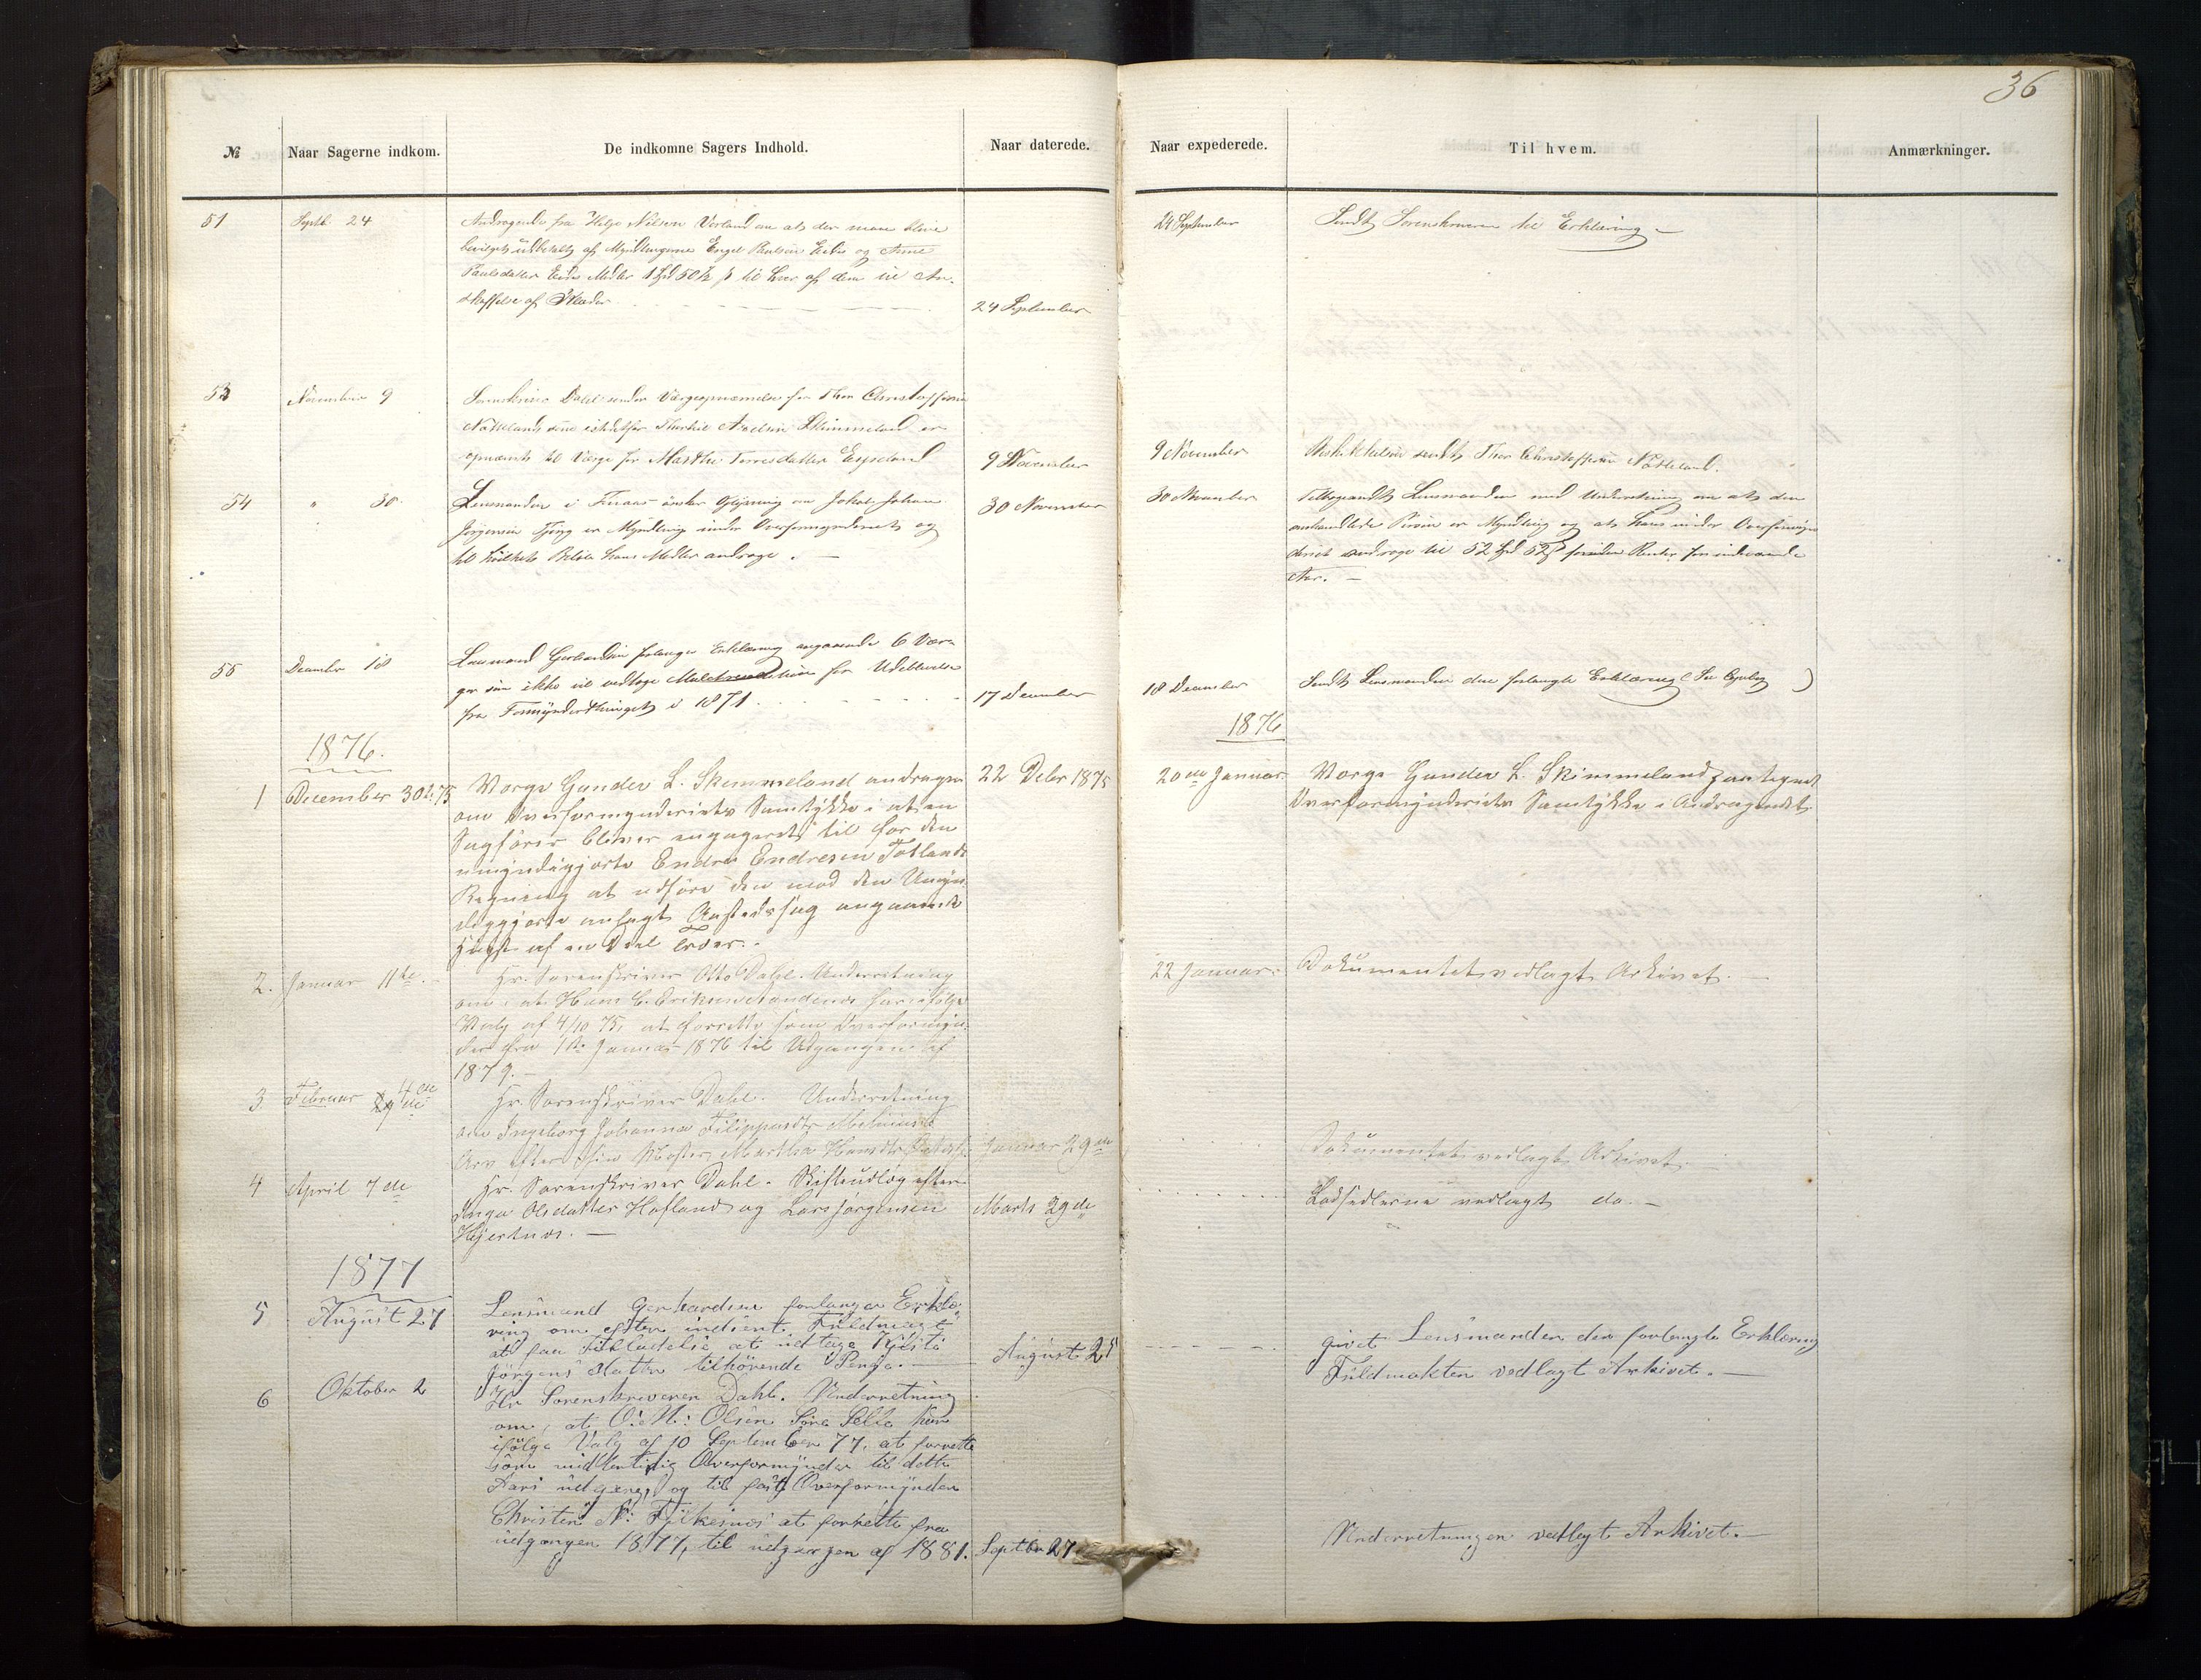 36
№ Naar Sagerne indkom. De indkomne Sagers Indhold. Naar daterede. Naar expederede. Til hvem. Anmærkninger.
51 Septb. 24
Andragende fra Helje Nilsen Verland om at der maa blive
bevilget udbetalt af Myndlingerne Engel Paulsen Eide og Anne
Paulsdatter Eide Midler til hver af dem til An-
skaffelse af Klæder
24 September
24 September
Sendt Sorenskriveren til Erklæring –
53 November 9
Sorenskriver Dahl sender Værgeopnævnelse for Thor Christoffersen
Nøtteland som istedetfor Skimmeland er
opnævnt til Værge for Marthe Espeland
9 November
9 November
sendt Thor Christoffersen Nøtteland.
54 " 30.
Lensmanden i Finaas ønsker Oplysning om Jakob Johan
Jørgensen er Myndling under Overformynderiet og
til hvilket Beløb hans Midler andrage. –
30 November
30 November
Tilbagesendt Lensmanden med Underretning om at den
omhandlede Person er Myndling og at hans under Overformyn
deriet andrage til 52 Spd 52 foruden Renter for indeværende
Aar. –
55 December 18
Lensmand Gerhardsen forlanger Erklæring angaaende 6 Vær-
ger som ikke vil vedtage for Udeblivelse
fra Formynderthinget i 1871
17 December
18 December
Sendt Lensmanden den forlangte Erklæring (Se Copibog )
1876.
1876
1 December 30te 75
Værge Gunder L. Skimmeland andrager
om Overformynderiets Samtykke i at en
Sagfører bliver engageret til for den
umyndiggjorte Endre Endresen Totlands
Regning at udføre den mod den Umyn
diggjorte anlagt Aastedssag angaaende
Hugst af en Deel Træer. –
22 Debr 1875
20de Januar
Værge Gunder L. Skimmeland paategnet
Overformynderiets Samtykke i Andragendet
2. Januar 11te. –
Hr. Sorenskriver Otto Dahl. Underretning
om, at Hans C. har ifølge
Valg af 4/10 75, at forrette som Overformyn
der fra 1ste Januar 1876 til Udgangen af
1879. –
22 Januar.
Dokumentet vedlagt Arkivet. –
3 Februar 4de
Hr. Sorenskriver Dahl. Underretning
om Ingeborg Johanna Filippusdtr
Arv efter sin Moster Martha Hansdtr
Januar 29de
Dokumentet vedlagt Arkivet. –
4 April 7de
Hr. Sorenskriver Dahl. Skifteudlæg efter
Inga Olsdatter Hofland og Lars Jørgensen
Hjertnæs. –
Marts 29de
Lodsedlerne vedlagt do. –
1877
5 August 27
Lensmand Gerhardsen forlanger Erklæ-
ring om efter indsent Fuldmagt
at faa Tilladelse at udtage
Jörgens Datter tilhörende Penge. –
August 25
givet Lensmanden den forlangte Erklæring
Fuldmakten vedlagt Arkivet. –
6 Oktober 2
Hr Sorenskriveren Dahl. Underretning
om, at O: N: Olsen har
ifølge Valg af 10 September 77, at forrette
som midlertidig Overformynder til dette
Aars udgang, og til fast Overformynder
Christen N: at forrette fra
udgangen 1877, til udgangen af 1881.
Septbr 27
Underretningen vedlagt Arkivet. –